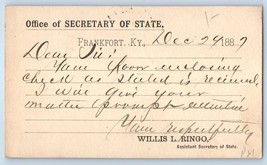 Office of SECRETARY OF STATE,
FRANKFORT, KY., Dec 29 1887
Dear Sir,
Your favor enclosing
check as stated is received
I will give your
matter prompt attention
Your respectfully
WILLIS L. RINGO,
Assistant Secretary of State.